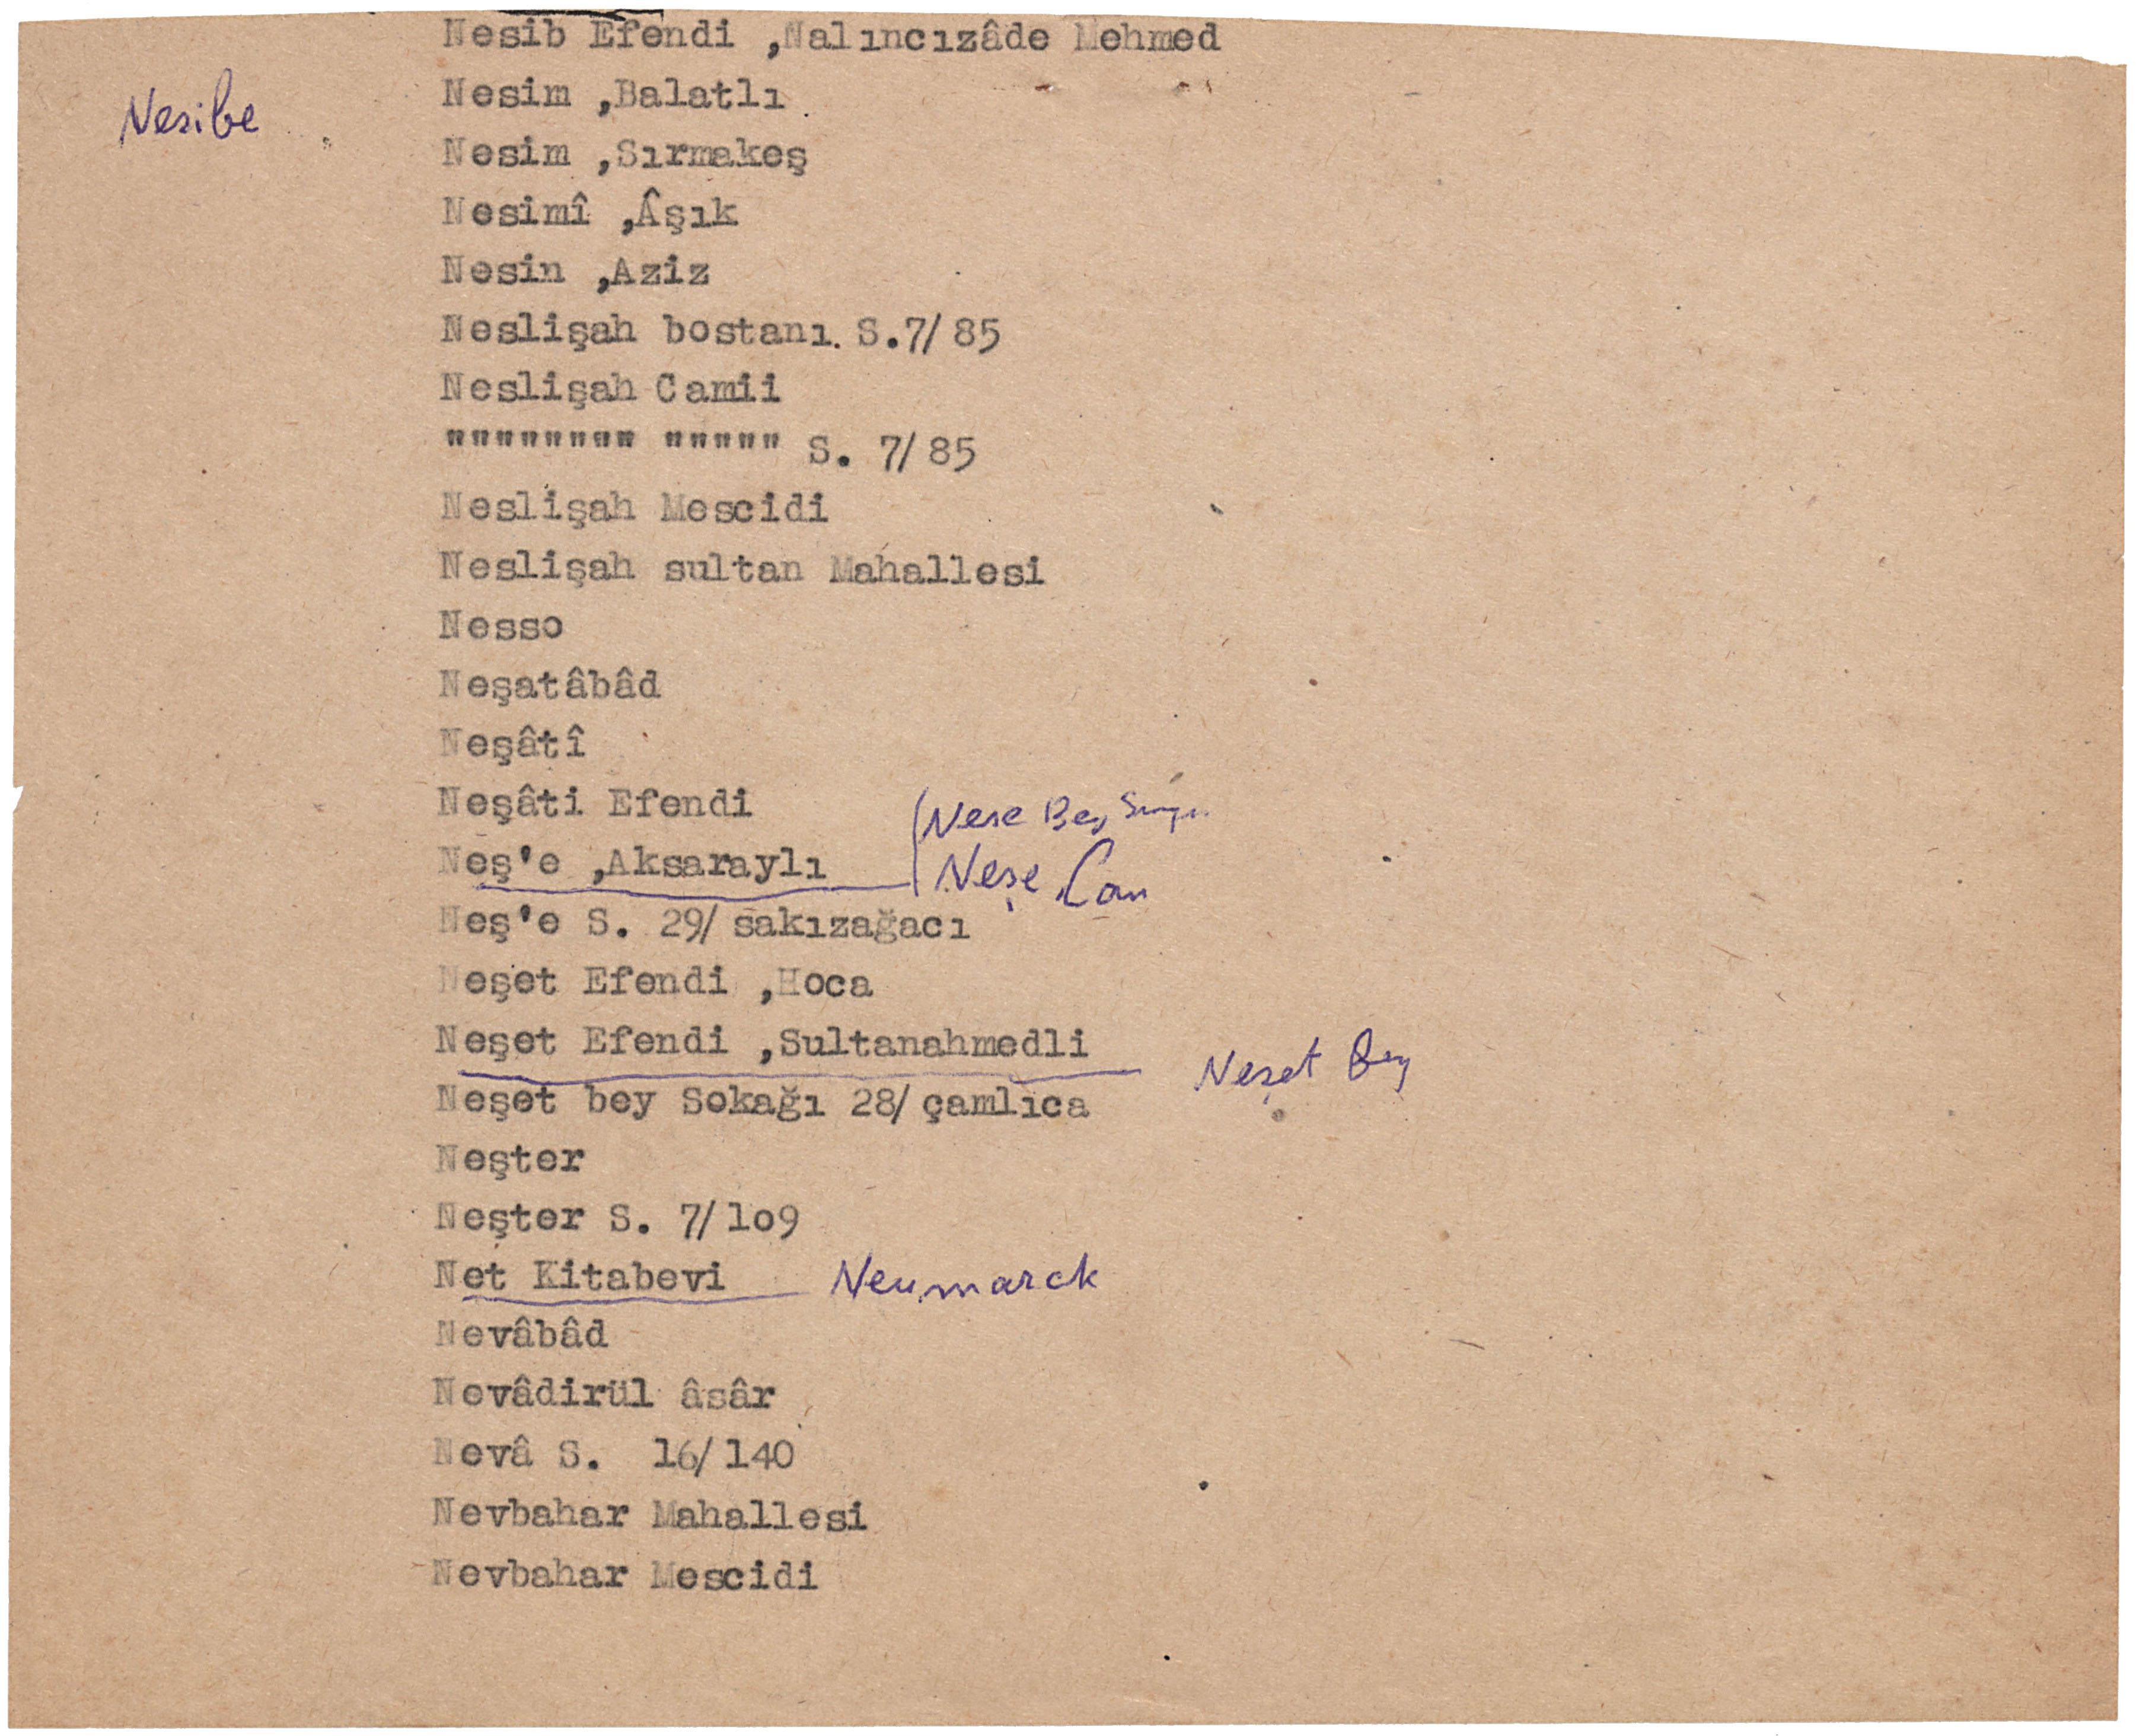 Nesib Efendi ,Nalıncızâde Mehmed
Nesim ,Balatlı
Nesibe
Nesim ,Sırmakeş
Nesimî ,Âşık
Nesin ,Aziz
Neslişah bostanı. S.7/85
Neslişah Camii
"""""""" """"" S. 7/85
Neslişah Mescidi
Neslişah sultan Mahallesi
Nesso
Neşatâbâd
Neşâtî
Neşâti Efendi
Nese Bey
Neş'e ,Aksaraylı
Neşe Can
Neş'e S. 29/ sakızağacı
Neşet Efendi ,Hoca
Neşet Efendi ,Sultanahmedli
Neşet Bey
Neşet bey Sokağı 28/ çamlıca
Neşter
Neşter S. 7/lo9
Net Kitabevi
Neumarck
Nevâbâd
Nevâdirül âsâr
Nevâ S. 16/140
Nevbahar Mahallesi
Nevbahar Mescidi